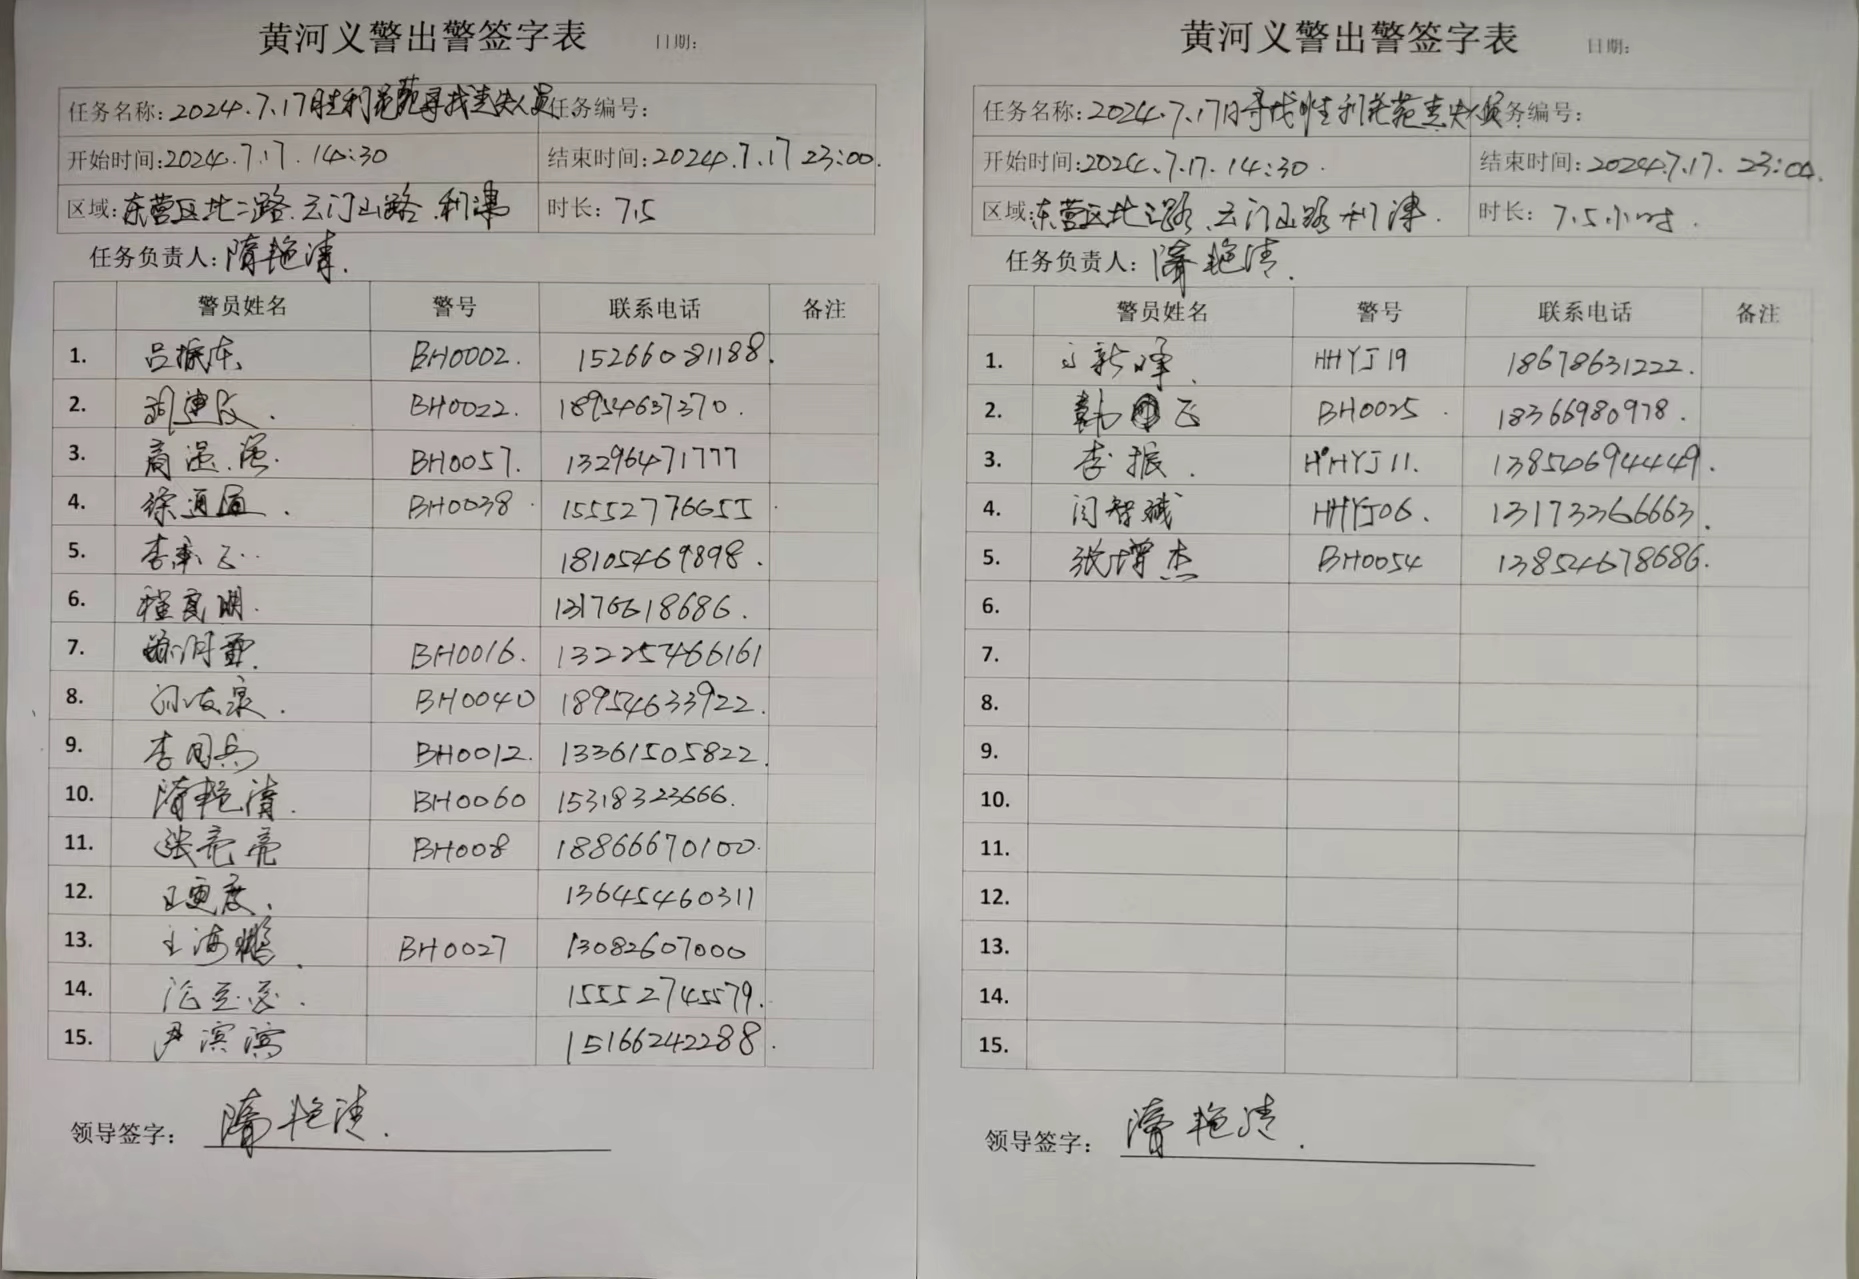 黄河义警出警签字表 日期:
任务名称: 2024.7.17胜利花苑寻找走失人员 任务编号:
开始时间:2024.7.17.14:30 结束时间:2024.7.17 23:00.
区域: 东营区北二路.云门山路.利津 时长: 7.5
任务负责人: 隋艳清.
警员姓名 警号 联系电话 备注
1. 吕振东 BH0002. 15266081188.
2. BH0022. 18954637370.
3. 商温强. BH0057. 13296471777
4. 徐通通. BH0038. 15552776655
5. 18105469898.
6. 程亮明. 13176618686.
7. BH0016. 13225466161
8. BH0040 18954633922.
9. 李同兵 BH0012. 13361505822.
10. 隋艳清. BH0060 15318323666.
11. 张亮亮 BH008 18866670100.
12. 13645460311
13. 王海鹏. BH0027 13082607000
14. 15552745579.
15. 尹滨滨 15166242288.
领导签字: 隋艳清.
黄河义警出警签字表 日期:
任务名称: 2024.7.17日寻找胜利花苑走失人员. 务编号:
开始时间:2024.7.17.14:30. 结束时间: 2024.7.17. 23:00.
区域: 东营区北二路.云门山路利津. 时长: 7.5小时.
任务负责人: 隋艳清.
警员姓名 警号 联系电话 备注
1. 新峰. HHYJ19 18678631222.
2. 韩 飞 BH0025. 18366980978.
3. 李振. HHYJ11. 13854694449.
4. 闫智斌 HHYJ06. 13173366663.
5. 张增杰 BH0054 13854678686.
6.
7.
8.
9.
10.
11.
12.
13.
14.
15.
领导签字: 隋艳清.